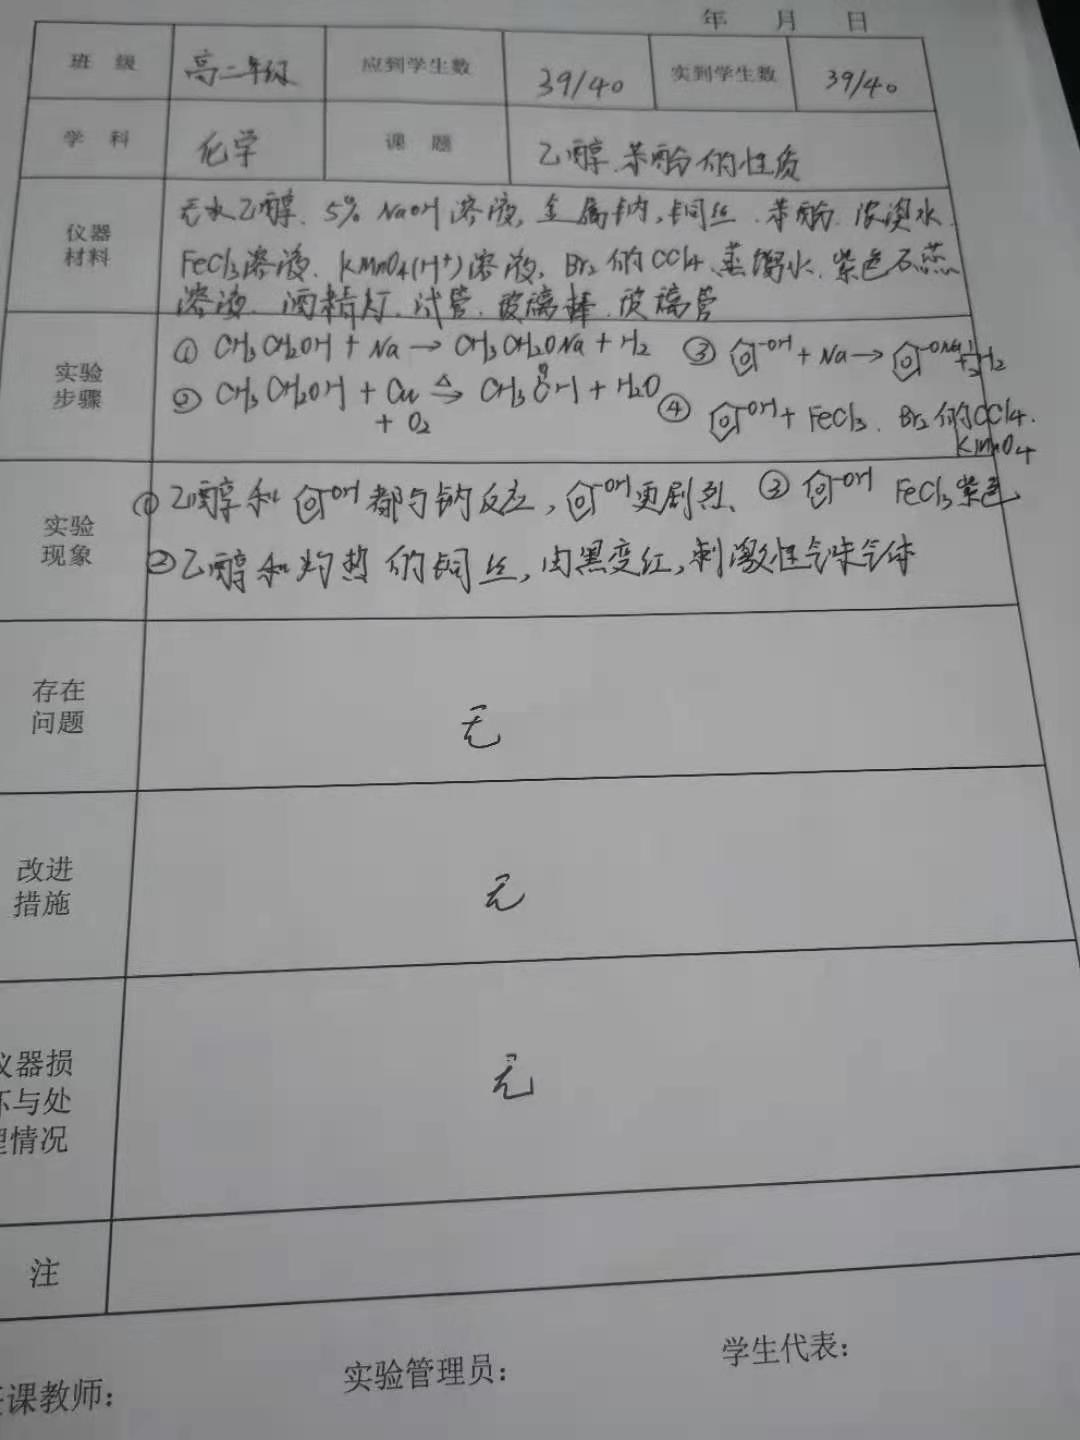 年 月 日
班 级 高二年级 应到学生数 39/40 实到学生数 39/40
学 科 化学 课 题 乙醇、苯酚的性质
仪器
材料
无水乙醇、5% NaOH溶液,金属钠,铜丝、苯酚、浓溴水、
FeCl3溶液、KMnO4(H+)溶液,Br2的CCl4、蒸馏水、紫色石蕊
溶液、酒精灯、试管、玻璃棒、玻璃管
实验
步骤
① CH3CH2OH + Na → CH3CH2ONa + H2 ③ -OH + Na → -ONa + 1/2 H2
② CH3CH2OH + Cu △ → CH3CH + H2O
O
+ O2
④ -OH + FeCl3、Br2的CCl4、
KMnO4
实验
现象
① 乙醇和 -OH 都与钠反应, -OH 更剧烈、 ③ -OH FeCl3紫色
② 乙醇和灼热的铜丝,由黑变红,刺激性气味气体
存在
问题
无
改进
措施
无
仪器损
坏与处
理情况
无
注
任课教师: 实验管理员: 学生代表: